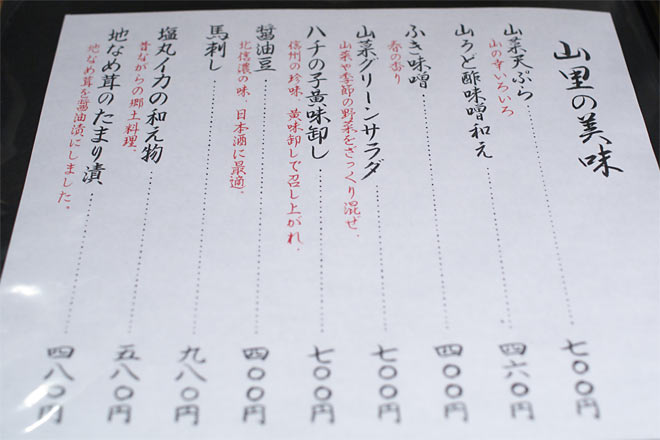 山里の美味
山菜天ぷら 七〇〇円
山の幸いろいろ
山うど酢味噌和え 四六〇円
ふき味噌 四〇〇円
春の香り
山菜グリーンサラダ 七〇〇円
山菜や季節の野菜をざっくり混ぜ、
ハチの子黄味卸し 七〇〇円
信州の珍味、黄味卸しで召し上がれ、
醤油豆 四〇〇円
北信濃の味、日本酒に最適、
馬刺し 九八〇円
塩丸イカの和え物 五八〇円
昔ながらの郷土料理、
地なめ茸のたまり漬 四八〇円
地なめ茸を醤油漬にしました。